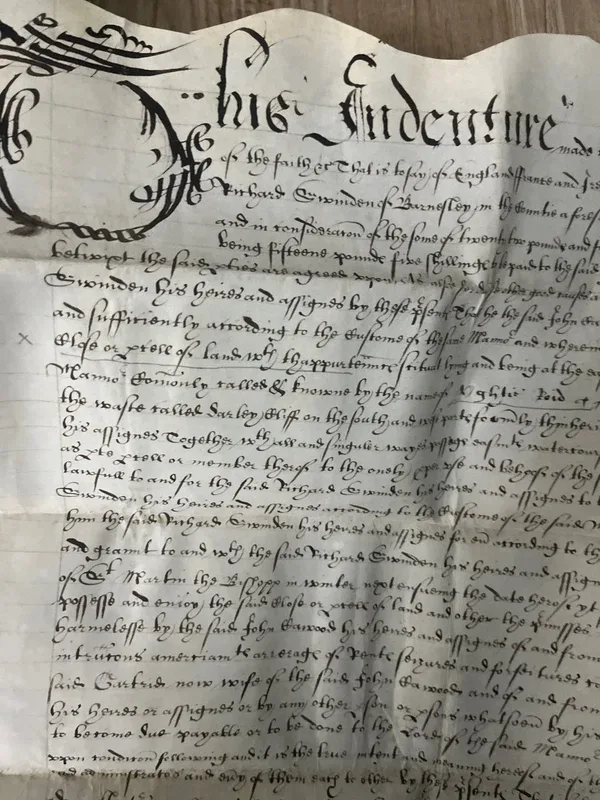 This Indenture made
of the faith &c That is to say of England ffrance and Ire
Richard Swinden of Barnesley in the Countie afores
and in consideracon of the some of twentie two pounds and f
being fifteene pounds five shillings to be paid to the said
betwixt the said pties are agreed upon As also for other good causes a
Swinden his heires and assignes by these psents That he the said John Ea
and sufficiently according to the Custome of the same Manno and wherein
Close or pcell of land wth thappurtennces scituat lying and being at the ea
Manno Comonly called & knowne by the name of Roid
the waste called darley Cliff on the south and
his assignes Together wth all and singuler wayes passage easmts watercour
as pte pcell or member therof to the onely pper use and behoof of the
lawfull to and for the said Richard Swinden his heires and assignes to
Swinden his heires and assignes according to the Custome of the said M
him the said Richard Swinden his heires and assignes for en according to th
and graunt to and wth the said Richard Swinden his heires and assign
of St Martin the Bishopp in winter next ensueing the date herof yt
possesse and enjoy the said Close or pcell of land and other the pmisses
harmelesse by the said John Eawood his heires and assignes of and from
intrucons amerciamts arrerage of Rents seizures and forfeitures
said Gartrid now wife of the said John Eawood and of and from
his heires or assignes or by any other pson or psons whatsoeu by his
to become due payable or to be done to the Lord of the said Manno
upon condicon following and it is the true intent and meaning hereof and of th
and administrators and evy of them each to other by these psents That